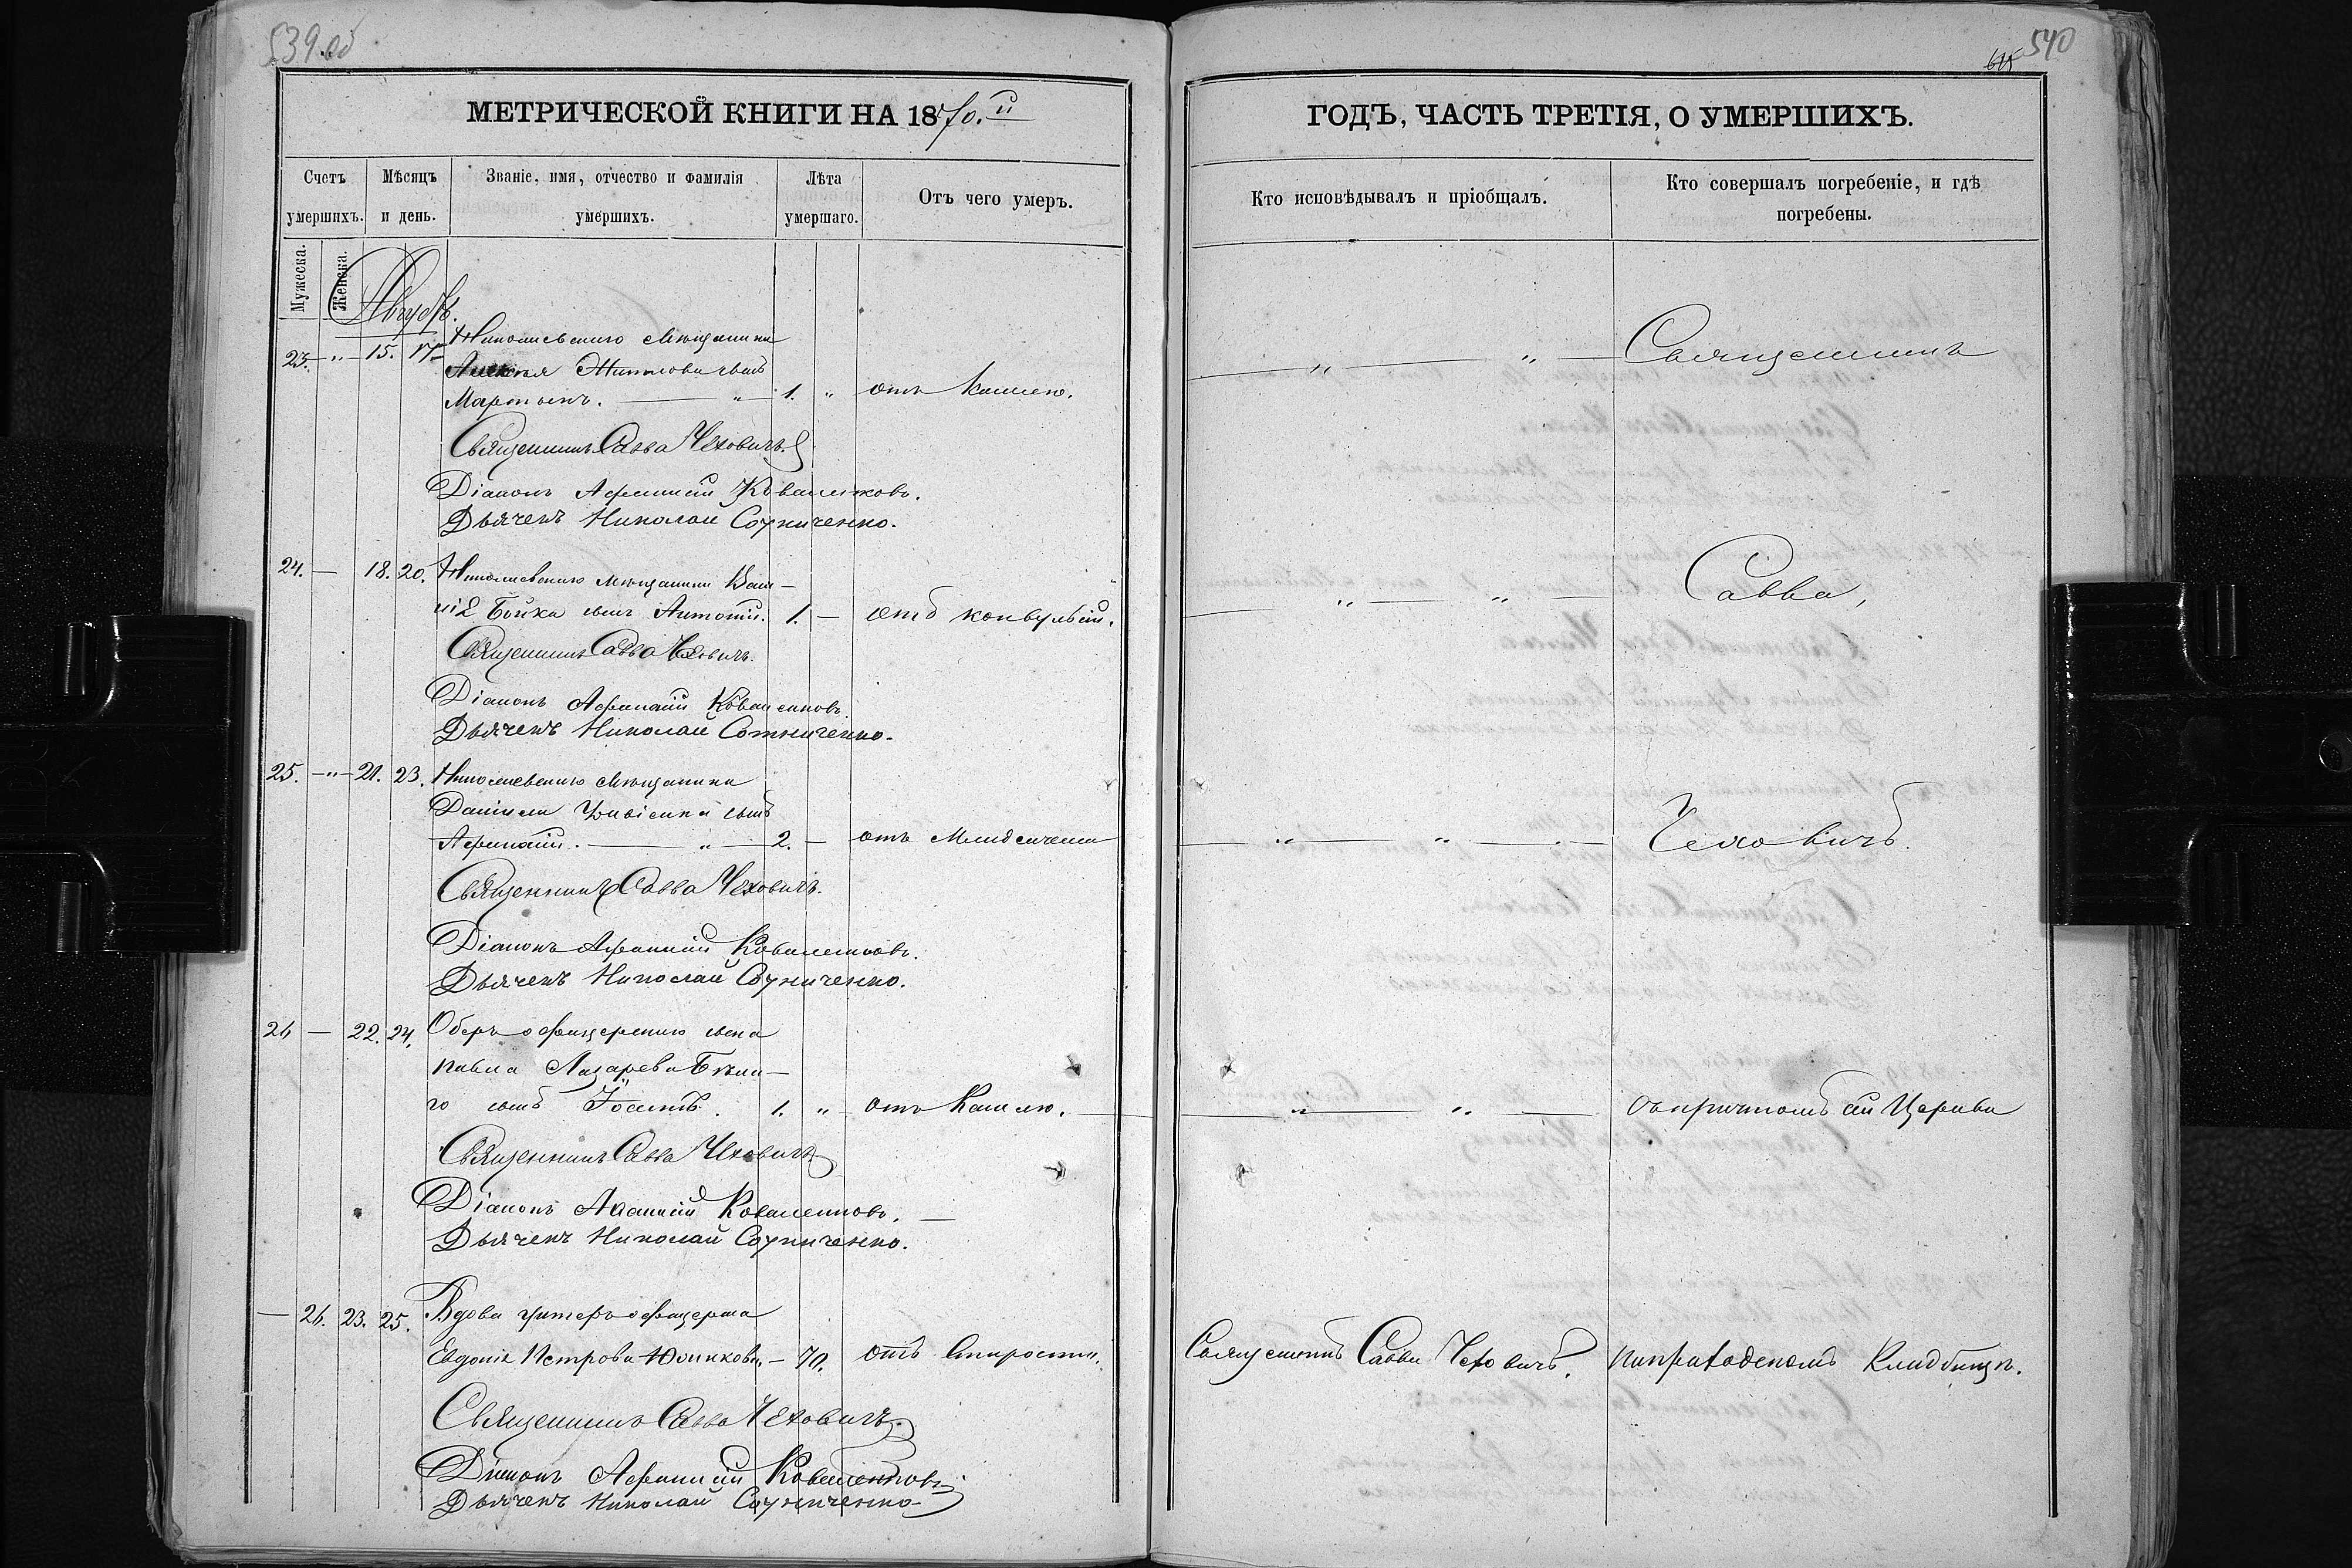 539 об
МЕТРИЧЕСКОЙ КНИГИ НА 1870.й
Счетъ умершихъ.
Мѣсяцъ и день.
Званіе, имя, отчество и фамилія умершихъ.
Лѣта умершаго.
Отъ чего умеръ.
Мужеска.
Женска.
Августъ.
Николаевскаго Мѣщанина
23. " 15. 17. Алексѣя сынъ
Мартынъ. " 1. " отъ Кашлю.
Священникъ Савва Чеховичъ.
Діаконъ Афанасій Коваленковъ.
Дьячекъ Николай Сотниченко.
24. — 18. 20. Николаевскаго мѣщанина Васи-
лія Бойка сынъ Антоній. 1. — отъ конвульсій.
Священникъ Савва Чеховичъ.
Діаконъ Афанасій Коваленковъ.
Дьячекъ Николай Сотниченко.
25. — " — 21. 23. Николаевскаго Мѣщанина
Даніила сынъ
Афанасій. " 2. — отъ Младенческ
Священникъ Савва Чеховичъ.
Діаконъ Афанасій Коваленковъ.
Дьячекъ Николай Сотниченко.
26 — 22. 24. Оберъ офицерскаго сына
Павла Лазарева Бѣла-
го сынъ Іосифъ. 1. " отъ Кашлю.
Священникъ Савва Чеховичъ
Діаконъ Афанасій Коваленковъ.
Дьячекъ Николай Сотниченко.
— 26. 23. 25. Вдова унтеръ офицерша
Евдокія Петрова — 70. отъ Старости.
Священникъ Савва Чеховичъ.
Діаконъ Афанасій Коваленковъ
Дьячекъ Николай Сотниченко
540
ГОДЪ, ЧАСТЬ ТРЕТІЯ, О УМЕРШИХЪ.
Кто исповѣдывалъ и пріобщалъ.
Кто совершалъ погребеніе, и гдѣ погребены.
" " Священникъ
" " Савва,
" " Чеховичъ.
" " съ причтомъ сей Церкви
Священникъ Савва Чеховичъ. на приходскомъ Кладбищѣ.